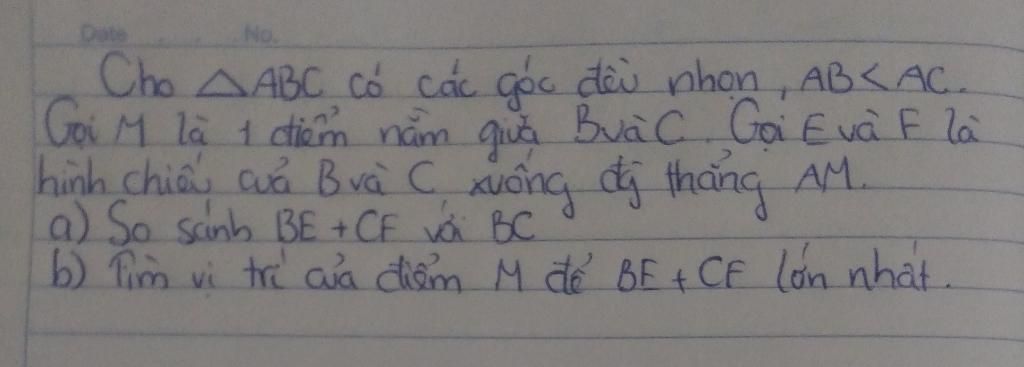 Date No.
Cho △ABC có các góc đều nhọn, AB < AC.
Gọi M là 1 điểm nằm giữa B và C. Gọi E và F là
hình chiếu của B và C xuống đg thẳng AM.
a) So sánh BE + CF với BC
b) Tìm vị trí của điểm M để BE + CF lớn nhất.